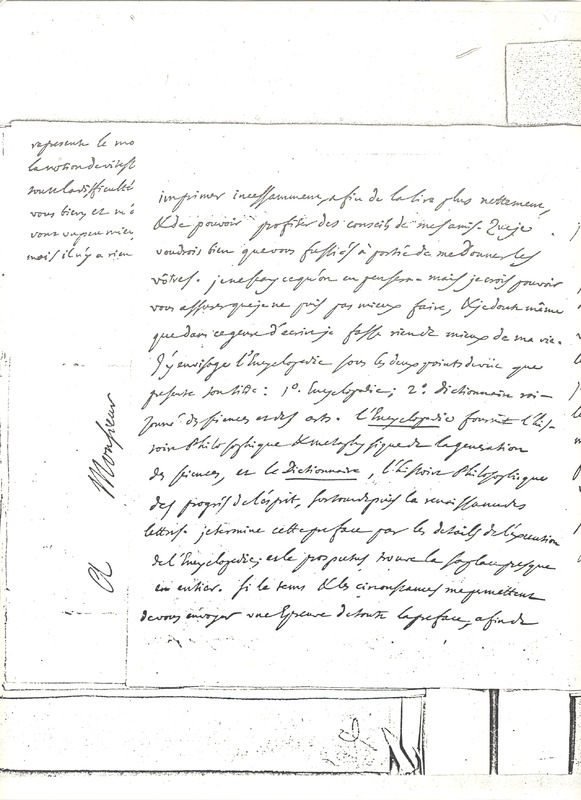 represente le mo
la notion de vitesse
toute la difficulté
vous tiens, et m'é
vont un peu mieu
mais il n'y a rien
imprimer incessamment, afin de la lire plus nettement,
& de pouvoir profiter des conseils de mes amis. Que je
voudrois bien que vous fussiés à portée de me donner les
vôtres. je ne scay ce qu'on en pensera. mais je crois pouvoir
vous assurer que je ne puis pas mieux faire, & je doute même
que dans ce genre d'ecrire je fasse rien de mieux de ma vie.
J'y envisage l'Encyclopedie sous les deux points de vüe que
presente son titre : 1°. Encyclopedie; 2°. dictionnaire rai-
sonné des sciences et des arts. l'Encyclopedie fournit l'his-
toire Philosophique & metaphysique de la generation
des sciences, et le Dictionnaire, l'histoire Philosophique
des progrès de l'esprit, sur tout depuis la renaissance des
lettres. je termine cette preface par les details de l'execution
de l'Encyclopedie; et le prospectus trouve là sa place presque
en entier. Si le tems & les circonstances me permettent
de vous envoyer une Epreuve de toute la preface, afin de
A Monsieur